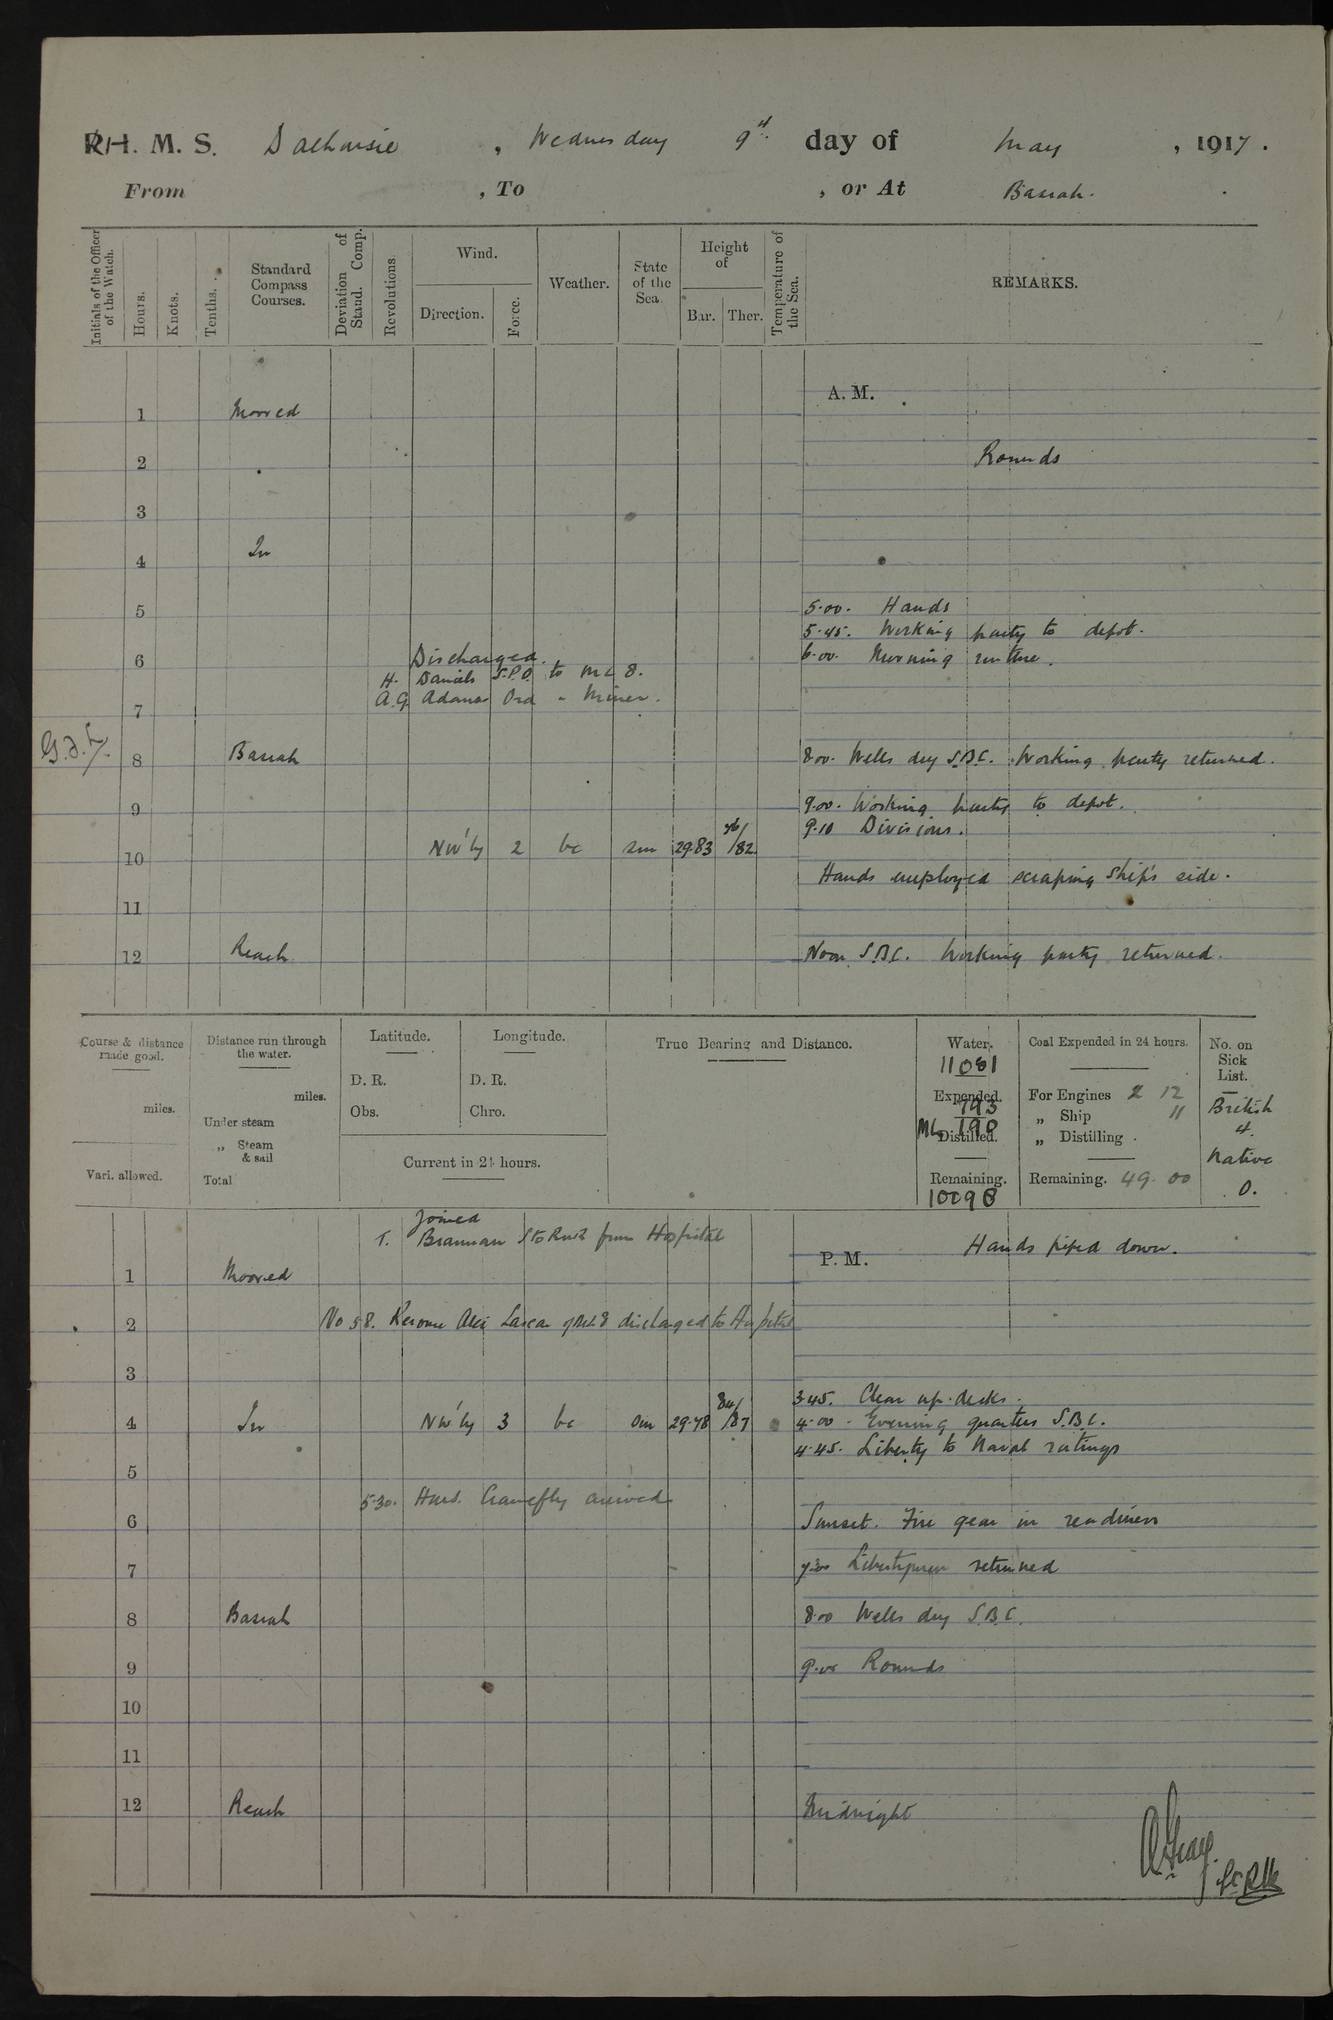 R.H. M. S. Dalhousie , Wednesday 9th day of May , 1917 .
From , To , or At Basrah.
Initials of the Officer of the Watch.
Hours.
Knots.
Tenths.
Standard Compass Courses.
Deviation of Stand. Comp.
Revolutions
Wind.
Direction.
Force.
Weather.
State of the Sea.
Height of
Bar. Ther.
Temperature of the Sea.
REMARKS.
A. M.
1 Moored
2 Rounds
3
4 In
5 5.00. Hands
5.45. Working party to depot.
6 6.00. Morning routine.
Discharged.
H. Daniels S.P.O. to ML 8.
A.G. Adams Ord " Miner.
7
8 Basrah 8.00. Wells dry S.B.C. Working party returned.
9 9.00. Working party to depot.
9.10 Divisions.
10 NW'ly 2 bc sm 29.83 76/82
Hands employed scraping ship's side.
11
12 Reach Noon S.B.C. Working party returned.
Course & distance made good.
miles.
Vari. allowed.
Distance run through the water.
miles.
Under steam
„ Steam & sail
Total
Latitude.
D. R.
Obs.
Longitude.
D. R.
Chro.
Current in 24 hours.
True Bearing and Distance.
Water.
11081
Expended.
793
ML 190
Distilled.
Remaining.
10098
Coal Expended in 24 hours.
For Engines 2 12
„ Ship "
„ Distilling .
Remaining. 49. 00
No. on Sick List.
British
4.
Native
0.
Joined
T. Brannan from Hospital
P. M. Hands piped down.
1 Moored
2 No 58. Lascar of ML 8 discharged to Hospital
3
3.45. Clear up decks.
4 In NW'ly 3 bc sm 29.78 84/87 4.00. Evening quarters S.B.C.
4.45. Liberty to Naval ratings
5
5.30. H.M.S. Cranefly arrived
6 Sunset. Fire gear in readiness
7 7.00 Libertymen returned
8 Basrah 8.00 Wells dry S.B.C.
9 9.00 Rounds
10
11
12 Reach Midnight